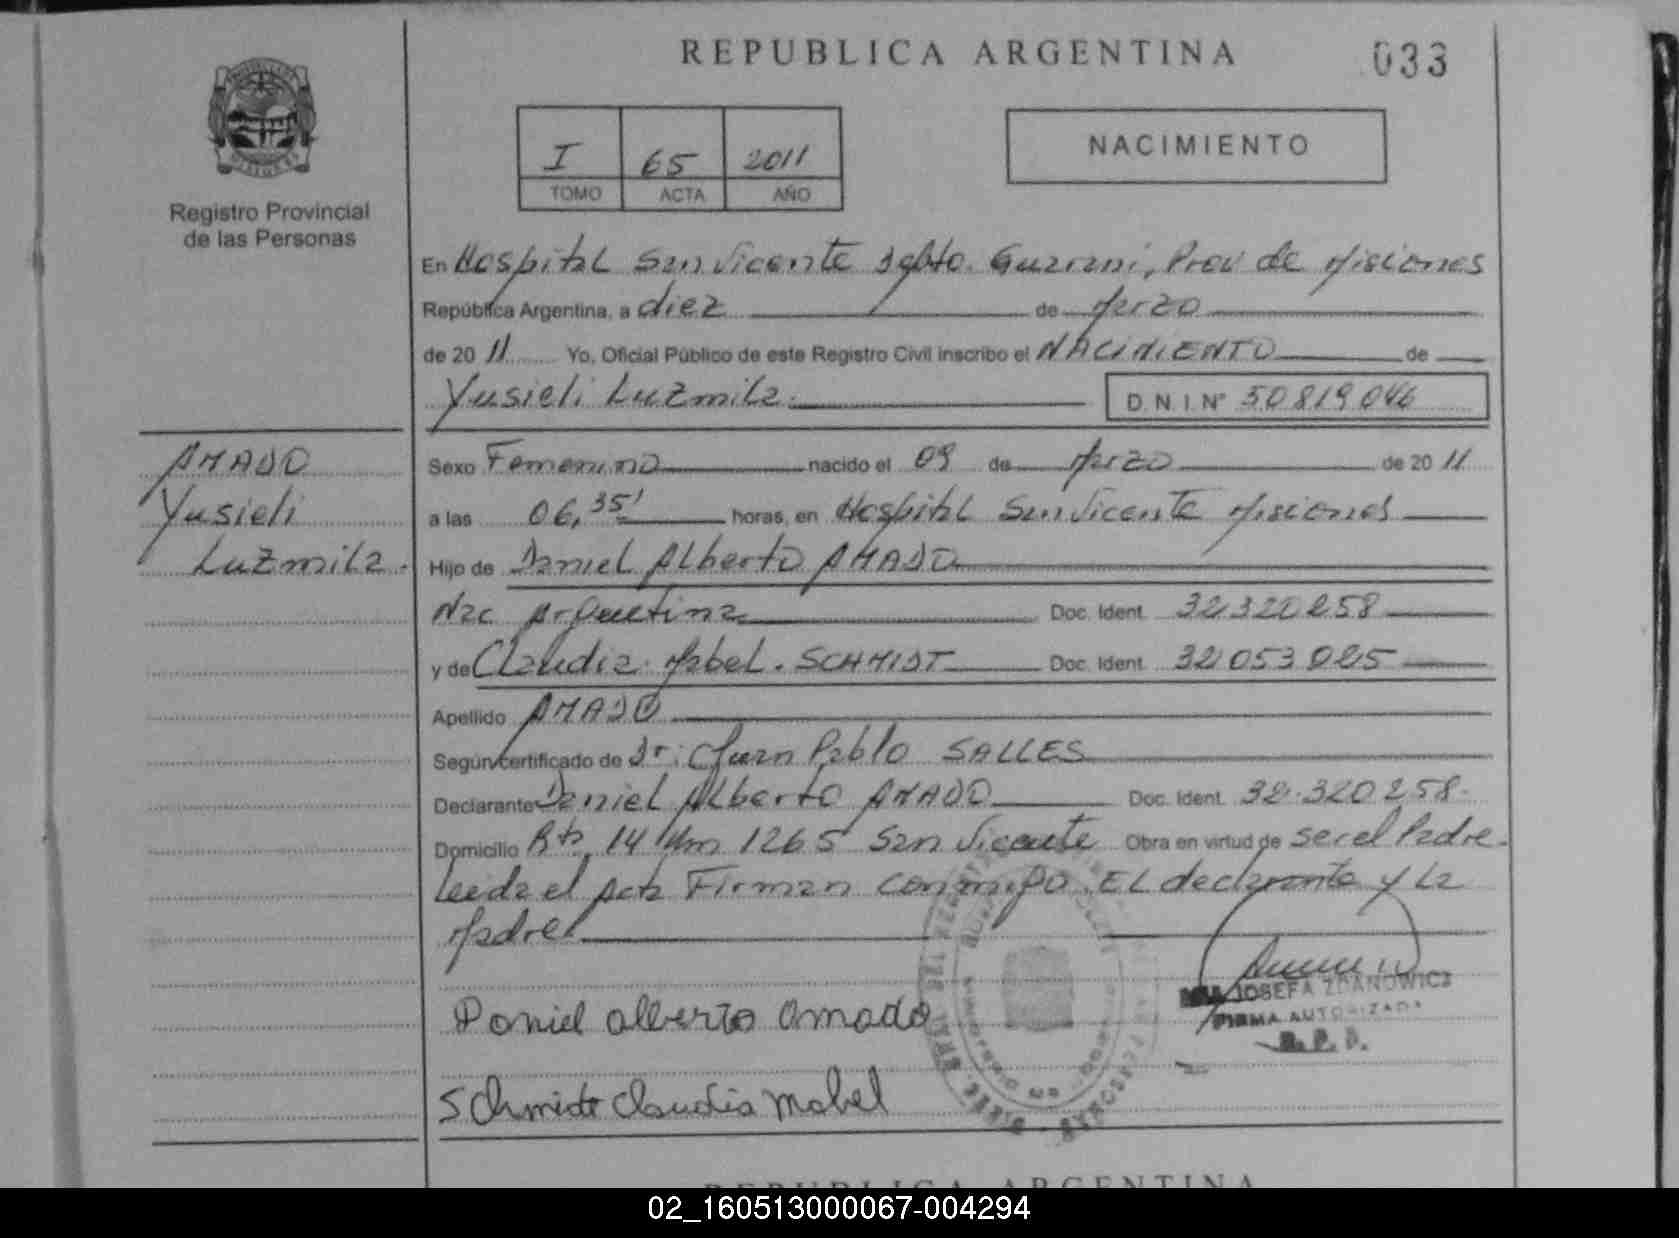 REPUBLICA ARGENTINA
033
I 65 2011
TOMO ACTA AÑO
NACIMIENTO
Registro Provincial
de las Personas
En Hospital San Vicente Dpto. Guarani, Prov de Misiones
República Argentina, a diez de Marzo
de 2011 Yo, Oficial Público de este Registro Civil inscribo el NACIMIENTO de
Yusieli Luzmila D.N.I. Nº 50819046
AMADO
Yusieli
Luzmila.
Sexo Femenino nacido el 09 de Marzo de 2011
a las 06,35' horas, en Hospital San Vicente Misiones
Hijo de Daniel Alberto AMADO
Nac Argentina Doc. Ident. 32320258
y de Claudia Mabel. SCHMIDT Doc. Ident. 32053025
Apellido AMADO
Según certificado de Dr: Juan Pablo SALLES
Declarante Daniel Alberto AMADO Doc. Ident. 32.320258.
Domicilio Rta 14 Km 1265 San Vicente Obra en virtud de ser el Padre.
Leeda el Acta Firman conmigo. EL declarante y La
Madre
JOSEFA ZDANOWICZ
FIRMA AUTORIZADA
Daniel alberto amado
Schmidt Claudia Mabel
REPUBLICA ARGENTINA
02_160513000067-004294